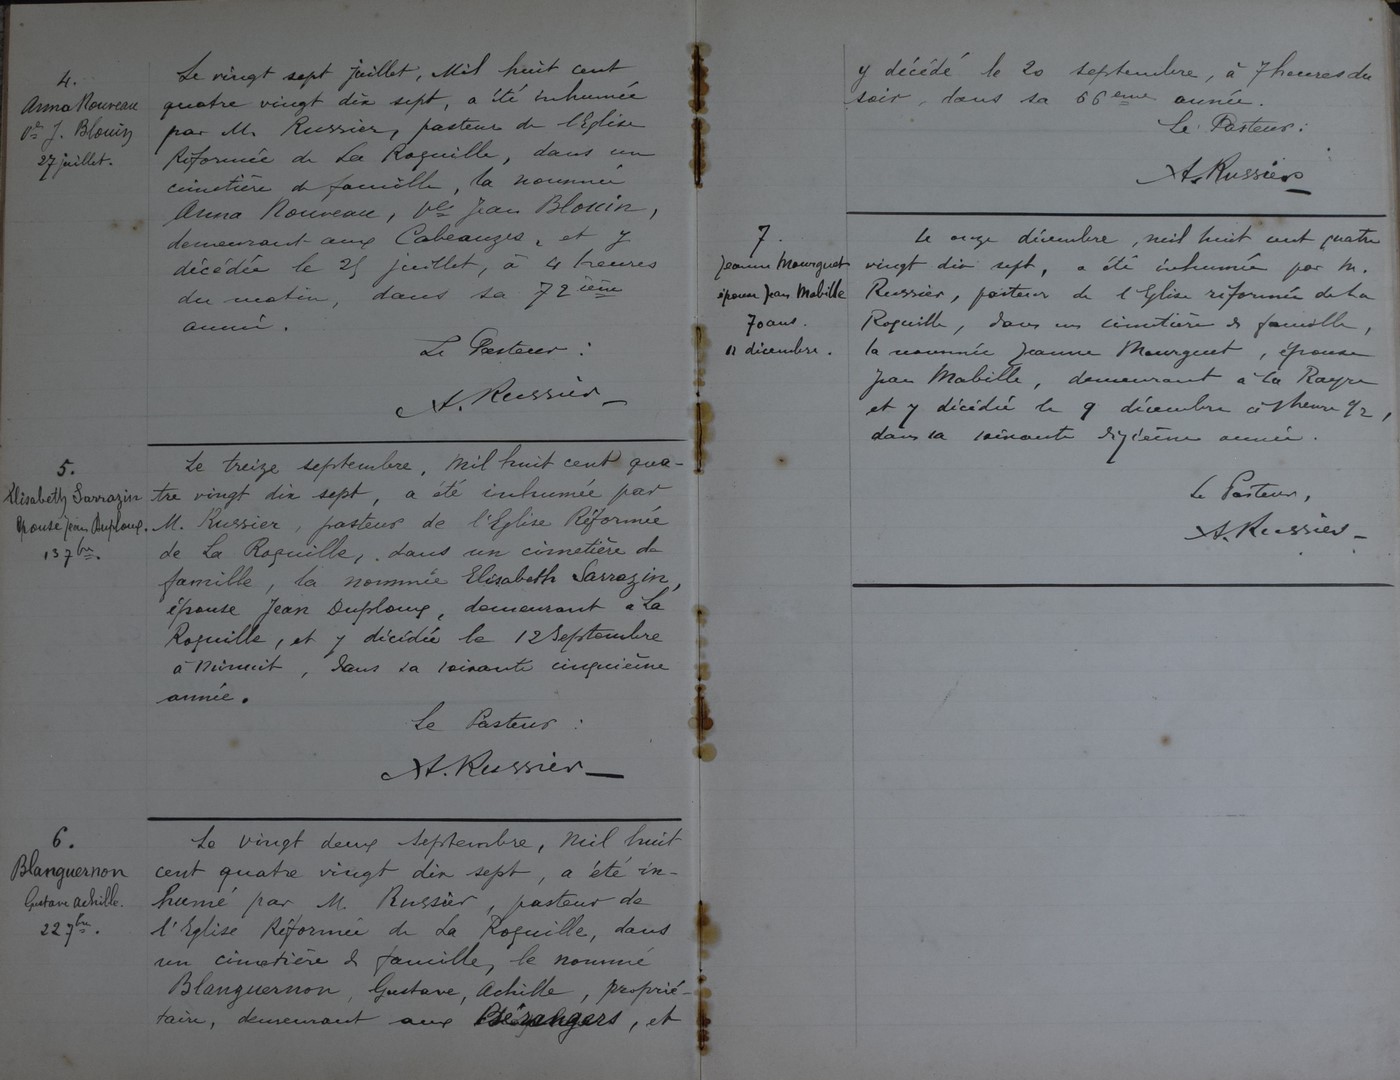 4.
Anna Nouveau
Vve J. Blouin
27 juillet.
Le vingt sept juillet, Mil huit cent
quatre vingt dix sept, a été inhumée
par M. Russier, pasteur de l'Eglise
Réformée de La Roquille, dans un
cimetière de famille, la nommée
Anna Nouveau, Vve Jean Blouin,
demeurant aux Cabeauzes, et y
décédée le 25 juillet, à 4 heures
du matin, dans sa 72ième
année.
Le Pasteur :
A. Russier
5.
Elisabeth Sarrazin
épouse Jean Duploux.
13 7bre.
Le treize septembre, Mil huit cent qua-
tre vingt dix sept, a été inhumée par
M. Russier, pasteur de l'Eglise Réformée
de La Roquille, dans un cimetière de
famille, la nommée Elisabeth Sarrazin,
épouse Jean Duploux, demeurant à La
Roquille, et y décédée le 12 Septembre
à Minuit, dans sa soixante cinquième
année.
Le Pasteur :
A. Russier
6.
Blanguernon
Gustave Achille.
22 7bre.
Le vingt deux Septembre, Mil huit
cent quatre vingt dix sept, a été in-
humé par M. Russier, pasteur de
l'Eglise Réformée de La Roquille, dans
un cimetière de famille, le nommé
Blanguernon, Gustave, Achille, proprié-
taire, demeurant aux Bérangers, et
y décédé le 20 septembre, à 7 heures du
soir, dans sa 66ème année.
Le Pasteur :
A. Russier
7.
Jeanne Mourguet
épouse Jean Mabille
70 ans.
11 décembre.
Le onze décembre, mil huit cent quatre
vingt dix sept, a été inhumée par M.
Russier, pasteur de l'Eglise réformée de La
Roquille, dans un cimetière de famille,
la nommée Jeanne Mourguet, épouse
Jean Mabille, demeurant à la Rayre
et y décédée le 9 décembre à 1 heure 1/2,
dans sa soixante dixième année.
Le Pasteur,
A. Russier